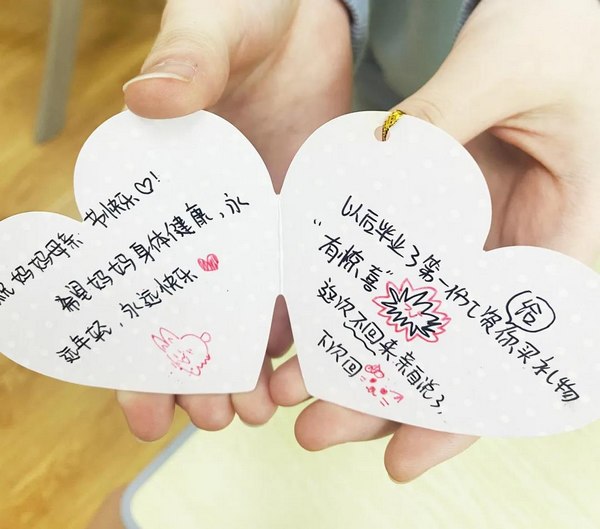 祝妈妈母亲节快乐♡!
希望妈妈身体健康,永
远年轻,永远快乐♥
以后毕业了第一份工资给你买礼物
"有惊喜"
这次不回来亲自说了,
下次回